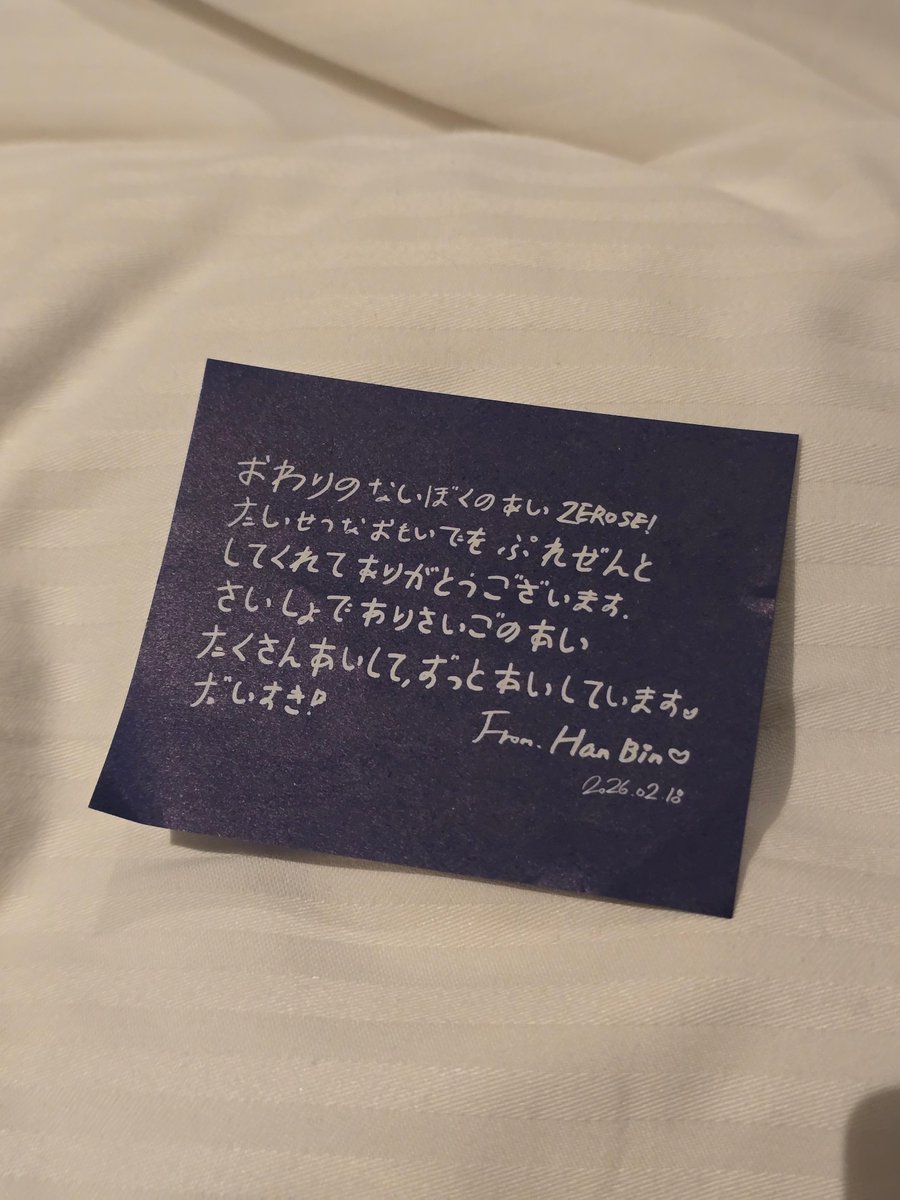 おわりのないぼくのあい ZEROSE!
たいせつなおもいでを ぷれぜんと
してくれてありがとうございます.
さいしょでありさいごのあい
たくさんあいして,ずっとあいしています♡
だいすき!
From. Han Bin♡
2026.02.18